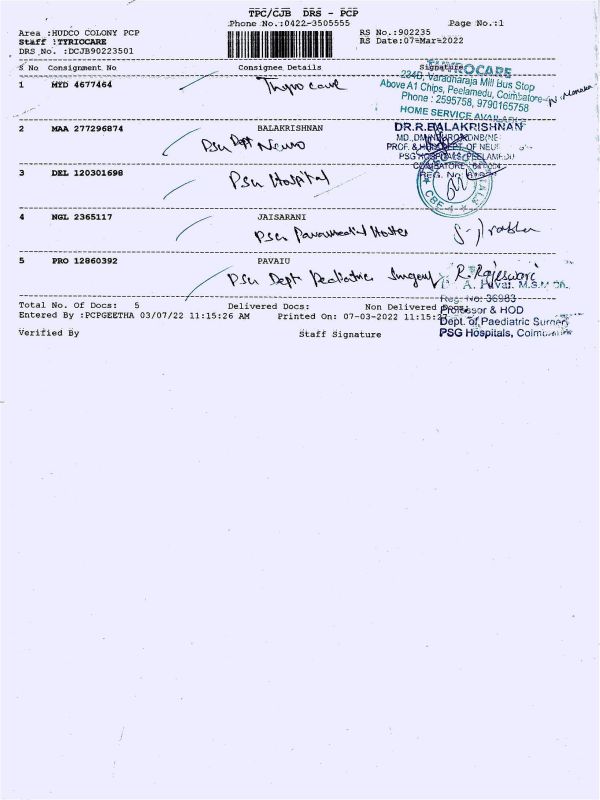 TPC/CJB DRS - PCP
Phone No.:0422-3505555 Page No.:1
Area :HUDCO COLONY PCP RS No.:902235
Staff :TYRIOCARE RS Date:07-Mar-2022
DRS No. :DCJB90223501
S No Consignment No Consignee Details Signature
THYROCARE
234D, Varadharaja Mill Bus Stop
1 MYD 4677464 Thyrocare Above A1 Chips, Peelamedu, Coimbatore-
Phone : 2595758, 9790165758
HOME SERVICE AVAILABLE
2 MAA 277296874 BALAKRISHNAN DR.R.BALAKRISHNAN
PSG Dept Neuro
PSG HOSPITALS, PEELAMEDU
3 DEL 120301698 PSG Hospital
CBE-4
4 NGL 2365117 JAISARANI
PSG Paramedical Hostel
5 PRO 12860392 PAVAIU
PSG Dept Pediatric Surgery R. Rajeswari
Reg. No: 36983
Total No. of Docs: 5 Delivered Docs: Non Delivered Docs:
Professor & HOD
Entered By :PCPGEETHA 03/07/22 11:15:26 AM Printed On: 07-03-2022 11:15:27
Dept. of Paediatric Surgery
Verified By Staff Signature PSG Hospitals,